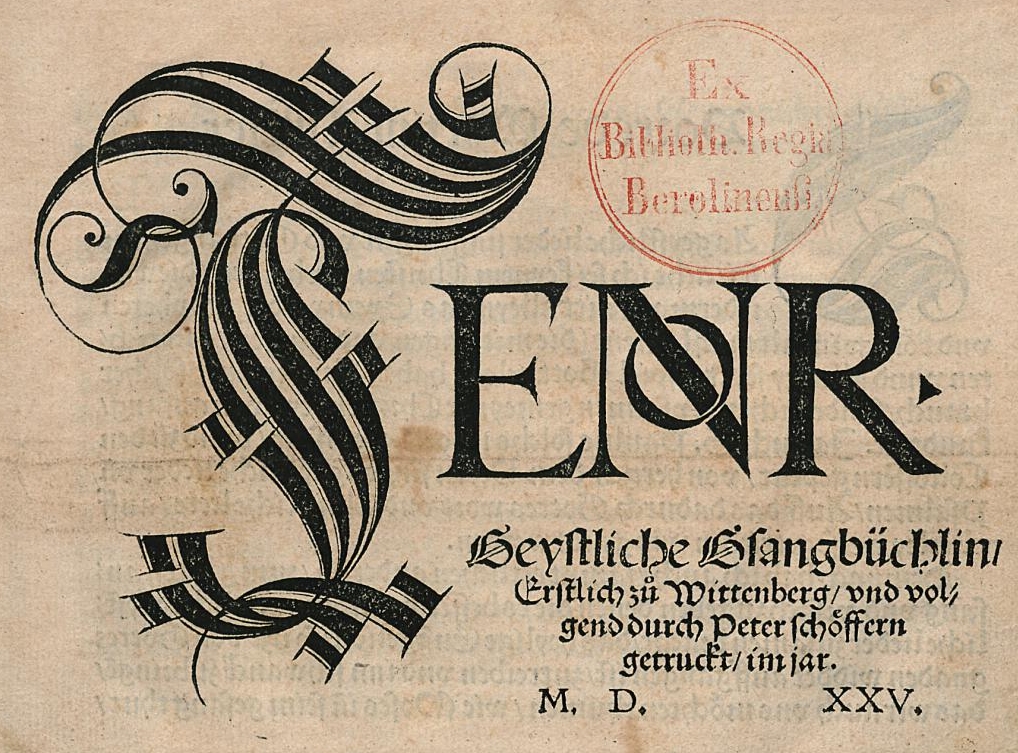 Ex
Biblioth. Regia
Berolinenſi.
TENOR.
Geyſtliche Gſangbüchlin/
Erſtlich zů Wittenberg/ vnd vol⸗
gend durch Peter ſchöffern
getruckt/ im jar.
M. D. XXV.